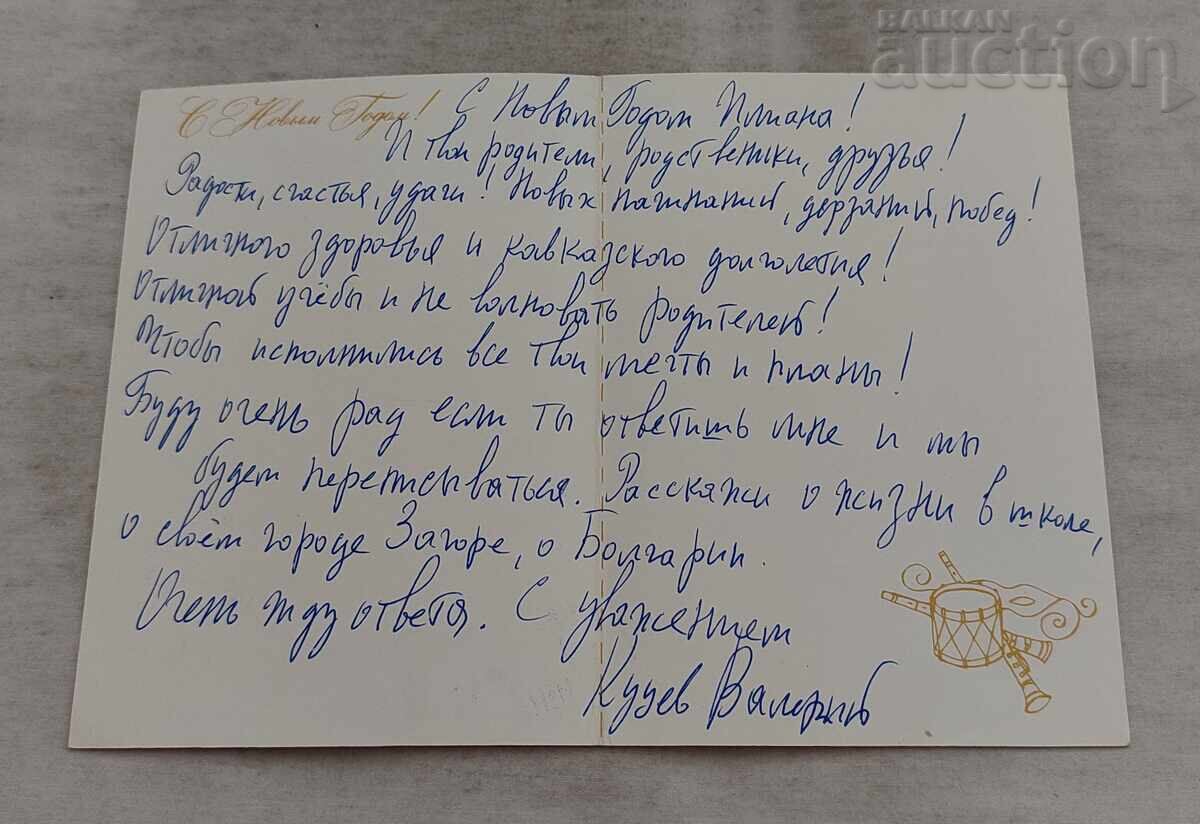 BALKAN
auction
С Новым Годом!
С Новым Годом Илиана!
И твои родители, родственики, друзья!
Радости, счастья, удачи! Новых начинаний, дерзаний, побед!
Отличного здоровья и кавказского долголетия!
Отличной учёбы и не волновать родителей!
Чтобы исполнились все твои мечты и планы!
Буду очень рад если ты ответишь мне и мы
будем переписываться. Расскажи о жизни в школе,
о своём городе Загоре, о Болгарии.
Очень жду ответа. С уважением
Валерий